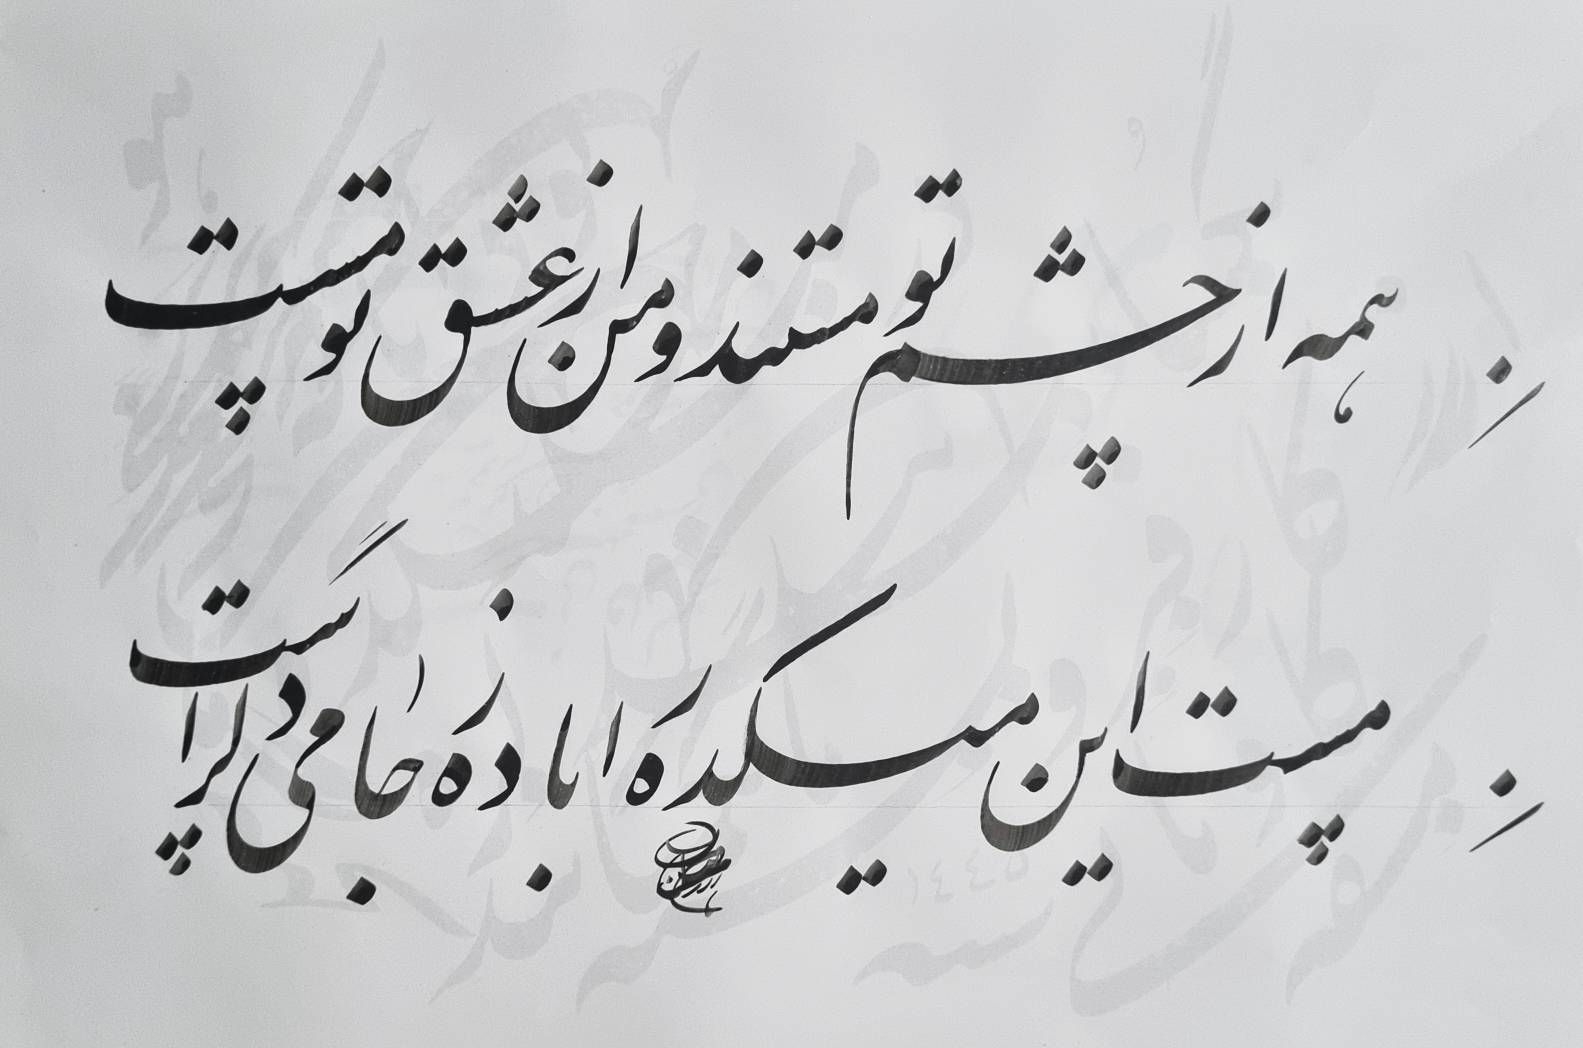 همه از چشم تو مستند و من از عشق تو مست
مست این میکده را باده ز جامی دگر است